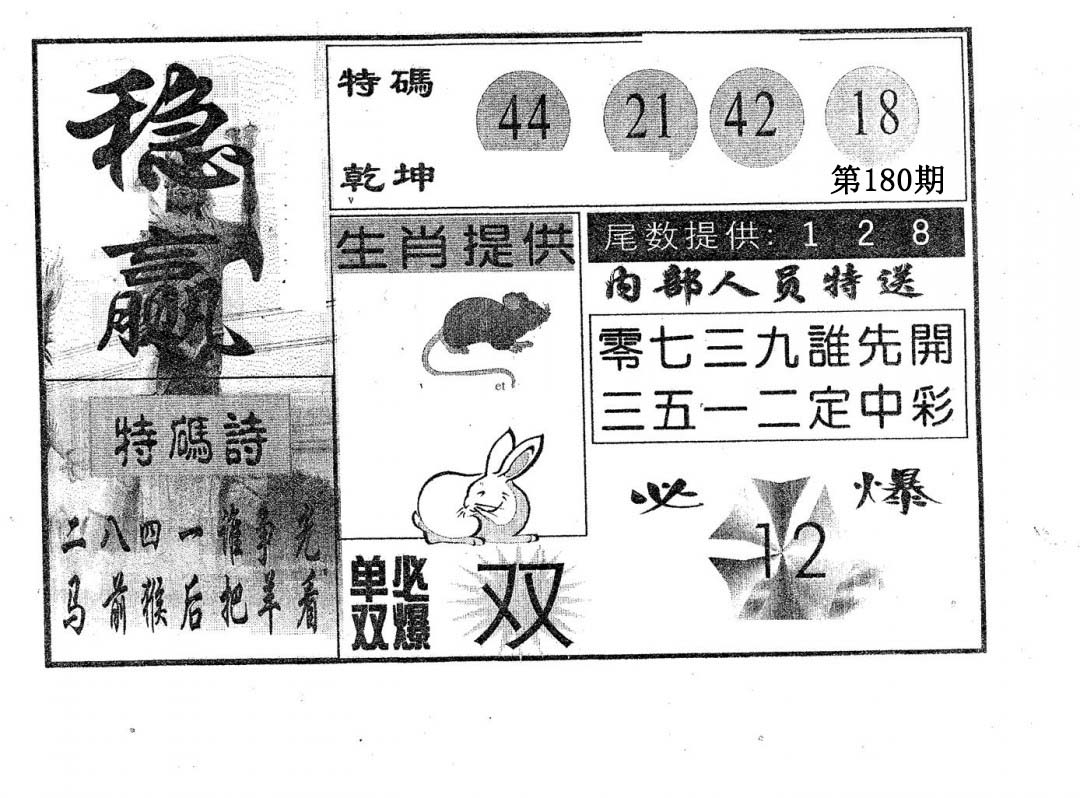 稳赢
特碼
乾坤
44 21 42 18
第180期
生肖提供
尾数提供: 1 2 8
内部人员特送
零七三九誰先開
三五一二定中彩
特碼詩
二八四一谁争先
马前猴后把羊看
单必
双爆
双
必爆
12
et
v